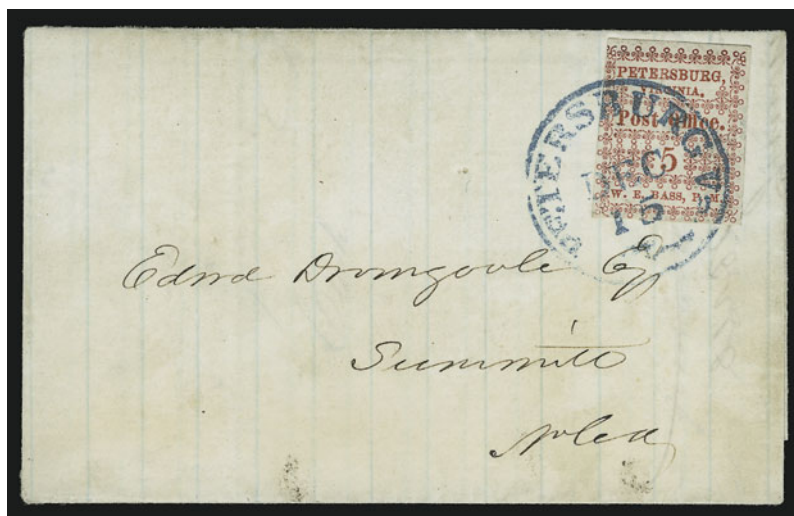 PETERSBURG,
VIRGINIA.
Post Office.
5
W. E. BASS, P. M.
PETERSBURG VA
DEC
15
Edwd Dromgoole Esq
Summitt
No Ca